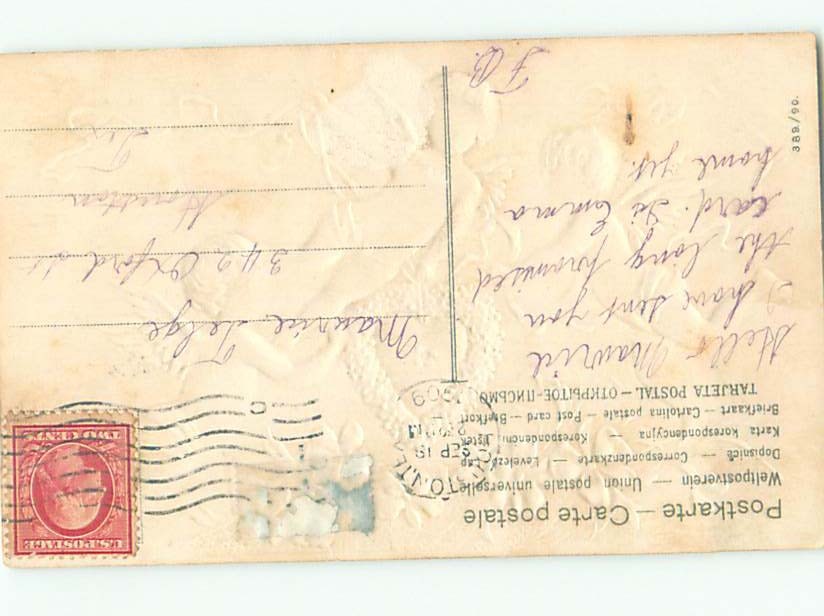 Postkarte — Carte postale
Weltpostverein — Union postale universelle
Dopisnice — Correspondenzkarte — Levelező-Lap
Karta korespondencyjna — Korespondenční lístek
Briefkaart — Cartolina postale — Post card — Brefkort
TARJETA POSTAL — ОТКРЫТОЕ-ПИСЬМО
Hello Maurice
I have sent you
the long promised
card. Is Emma
home yet.
F.B.
Maurice Telge
342 Oxford St
Houston
Tex
SEP 18
1909
TEX.
U.S. POSTAGE
TWO CENTS
389./90.